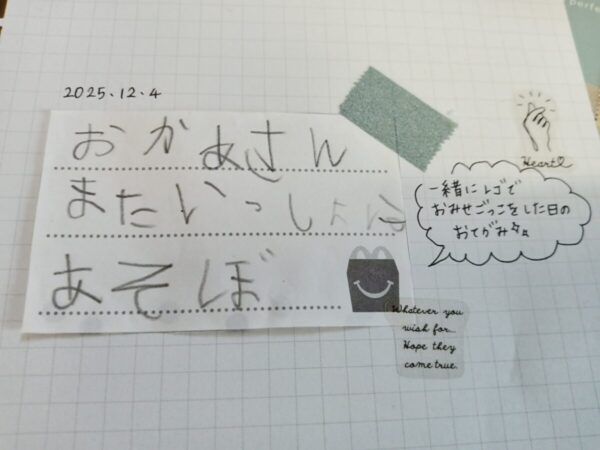 perfe
2025.12.4
おかあさん
またいっしょに
あそぼ
Heart
一緒にレゴで
おみせごっこをした日の
おてがみ
Whatever you
wish for...
Hope they
come true.